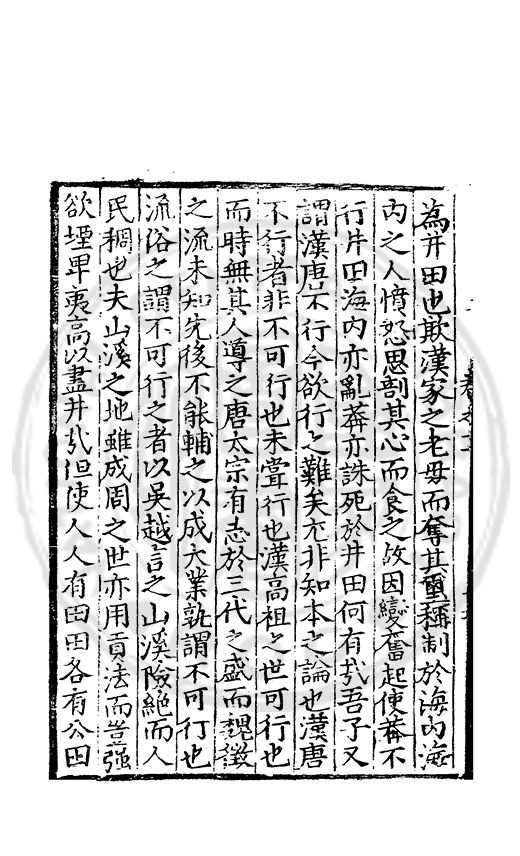 為井田也欺漢家之老母而奪其璽稱制於海內海
內之人憤怒思剖其心而食之故因變奮起使莽不
行井田海內亦亂莽亦誅死於井田何有哉吾子又
謂漢唐不行今欲行之難矣尤非知本之論也漢唐
不行者非不可行也未嘗行也漢高祖之世可行也
而時無其人導之唐太宗有志於三代之盛而魏徵
之流未知先後不能輔之以成大業孰謂不可行也
流俗之謂不可行之者以吳越言之山溪險絕而人
民稠也夫山溪之地雖成周之世亦用貢法而豈強
欲堙卑夷高以盡井哉但使人人有田田各有公田